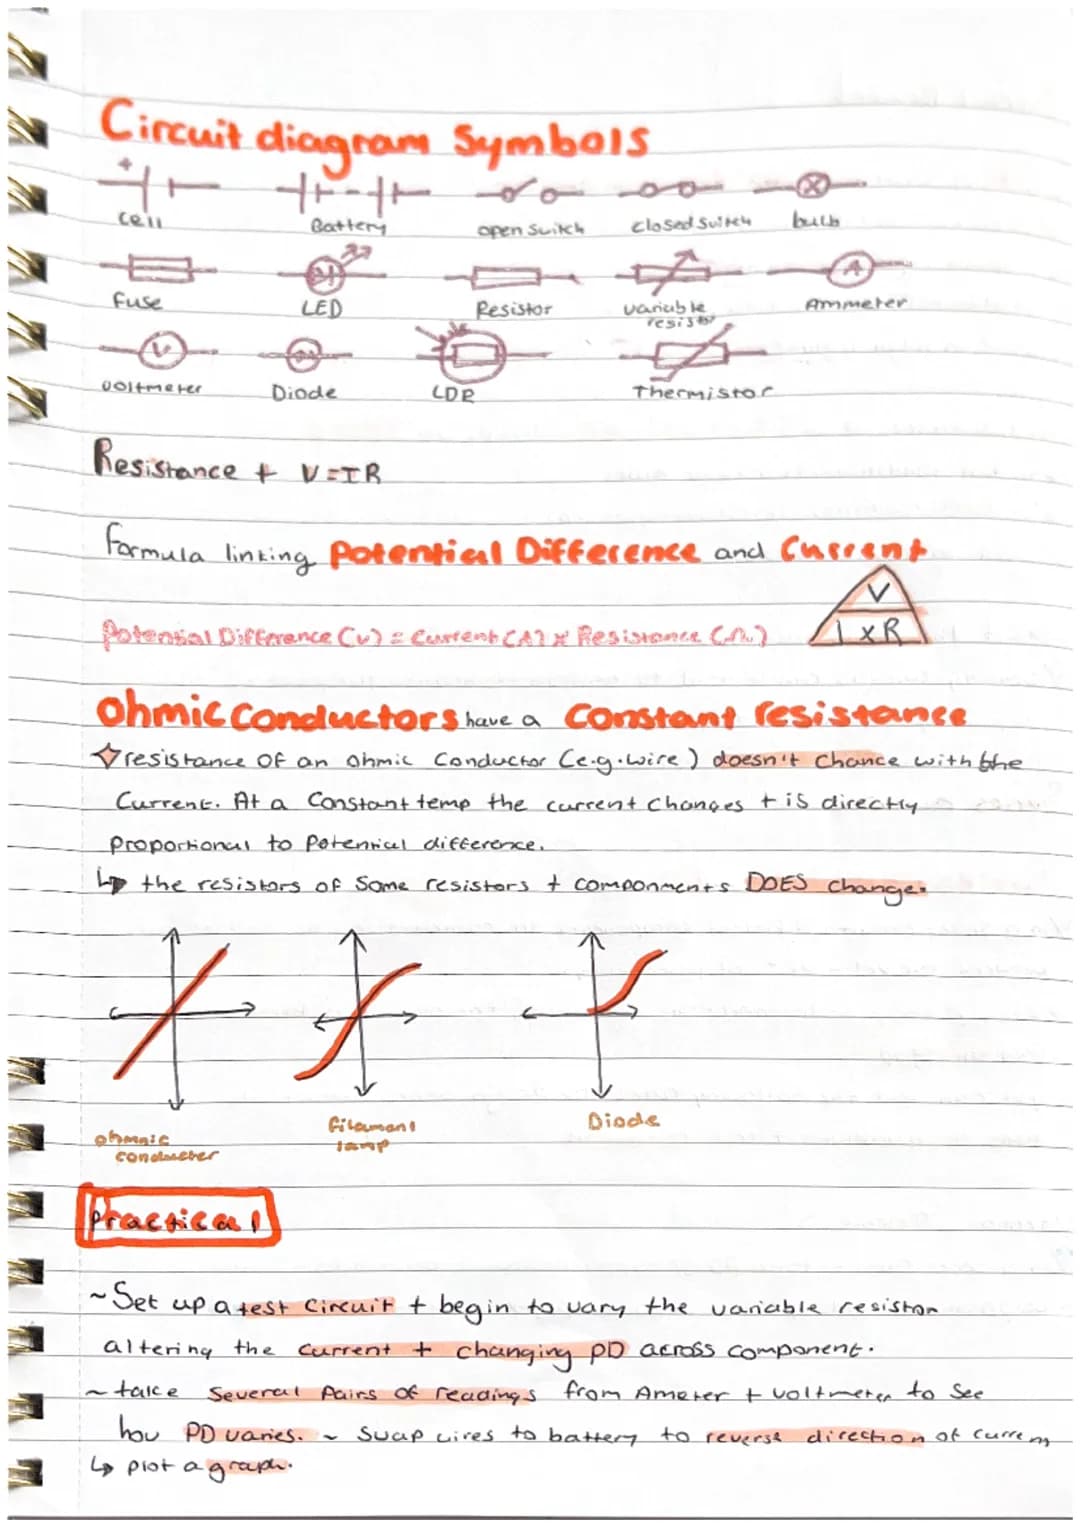 Circuit diagram Symbols
+
Cell Battery open switch closed switch bulb
A
fuse LED Resistor variable resistor Ammeter
V
voltmeter Diode LDR Thermistor
Resistance + V=IR
formula linking Potential Difference and Current
V
Potential Difference (V) = Current (A) x Resistance (Ω)
I x R
Ohmic Conductors have a Constant resistance
resistance of an ohmic Conductor (e.g. wire) doesn't chance with the
Current. At a Constant temp the current changes + is directly
proportional to Potential difference.
↳ the resistors of Some resistors + components DOES change.
ohmic conductor
filament lamp
Diode
Practical
~ Set up a test circuit + begin to vary the variable resistor
altering the current + changing PD across component.
~ take Several Pairs of readings from Ameter + voltmeter to See
how PD varies. ~ Swap wires to battery to reverse direction of current
↳ plot a graph.